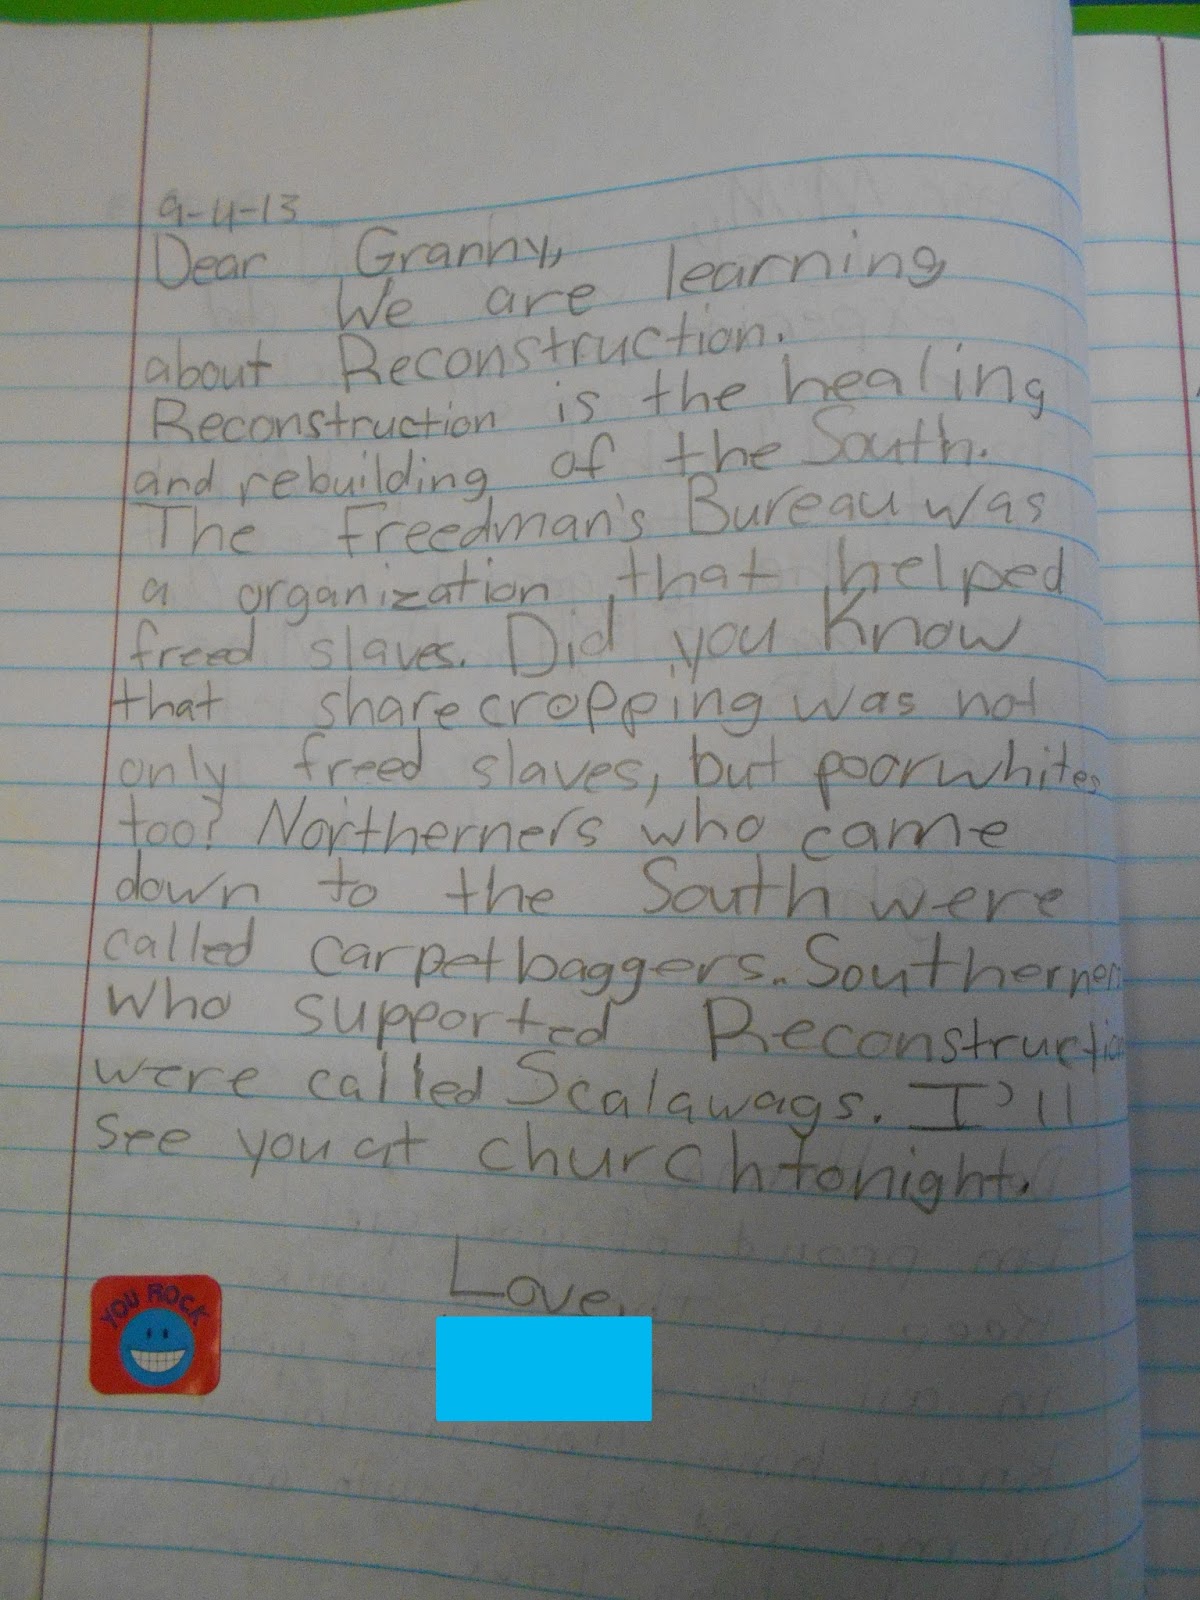 9-4-13
Dear Granny,
We are learning
about Reconstruction.
Reconstruction is the healing
and rebuilding of the South.
The Freedman's Bureau was
a organization that helped
freed slaves. Did you Know
that sharecropping was not
only freed slaves, but poor whites
too? Northerners who came
down to the South were
called carpetbaggers. Southerners
who supported Reconstruction
were called Scalawags. I'll
see you at church tonight.
Love,
YOU ROCK